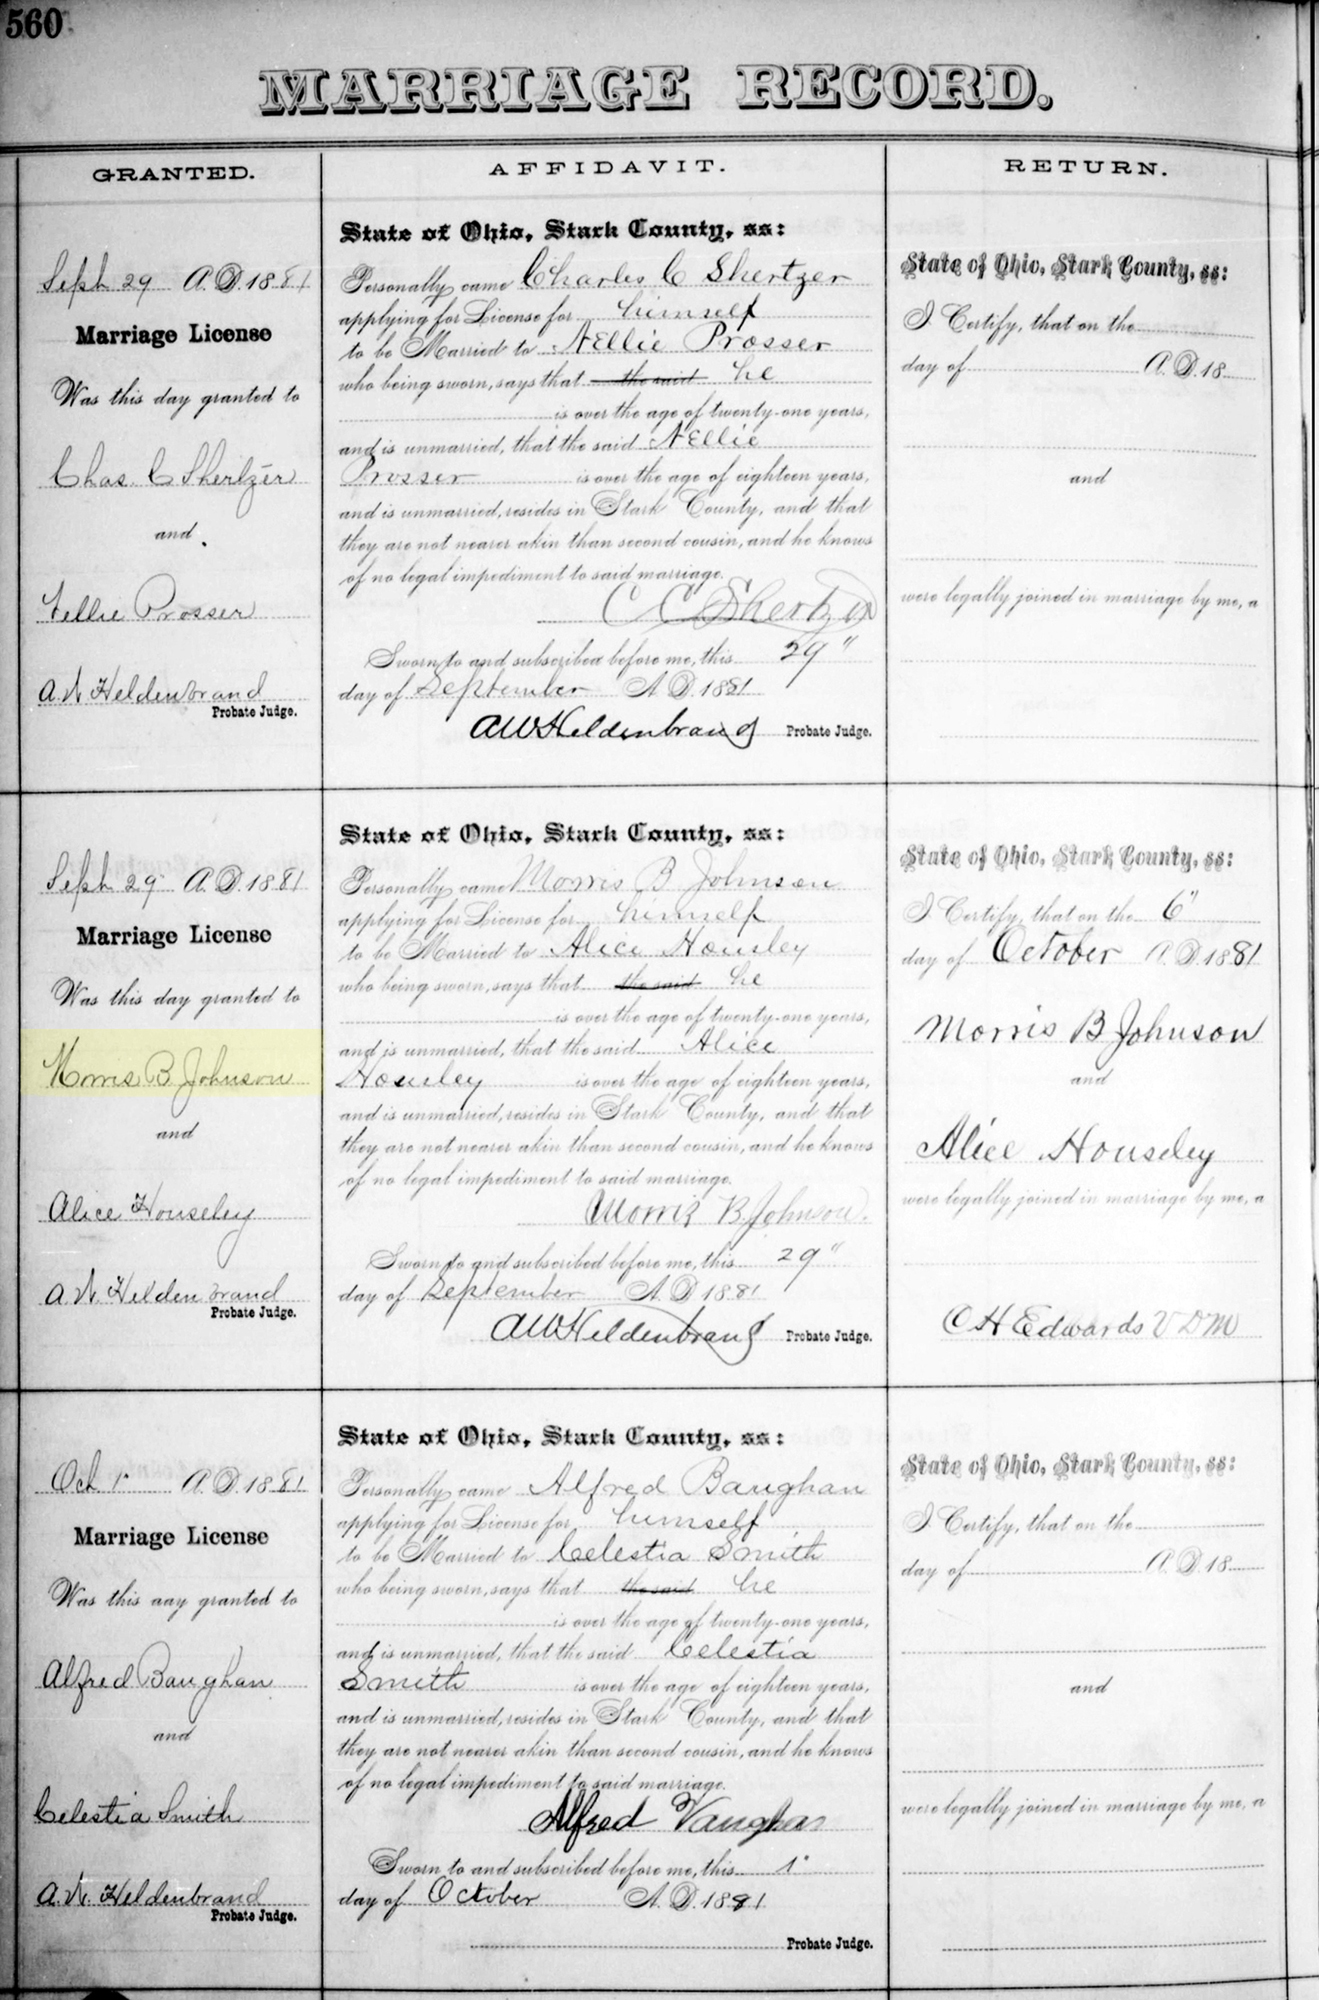 560
MARRIAGE RECORD.
GRANTED.
Sept 29 A.D. 1881
Marriage License
Was this day granted to
Chas. C Shertzer
and
Nellie Prosser
A. W. Heldenbrand
Probate Judge.
Sept 29 A.D. 1881
Marriage License
Was this day granted to
Morris B Johnson
and
Alice Houseley
A. W. Heldenbrand
Probate Judge.
Oct 1" A.D. 1881
Marriage License
Was this day granted to
Alfred Baughan
and
Celestia Smith
A. W. Heldenbrand
Probate Judge.
AFFIDAVIT.
State of Ohio, Stark County, ss:
Personally came Charles C Shertzer
applying for License for himself
to be Married to Nellie Prosser
who being sworn, says that the said he
is over the age of twenty-one years,
and is unmarried, that the said Nellie
Prosser is over the age of eighteen years,
and is unmarried, resides in Stark County, and that
they are not nearer akin than second cousin, and he knows
of no legal impediment to said marriage.
C C Shertzer
Sworn to and subscribed before me, this 29"
day of September A.D. 1881
AW Heldenbrand Probate Judge.
State of Ohio, Stark County, ss:
Personally came Morris B Johnson
applying for License for himself
to be Married to Alice Housley
who being sworn, says that the said he
is over the age of twenty-one years,
and is unmarried, that the said Alice
Housley is over the age of eighteen years,
and is unmarried, resides in Stark County, and that
they are not nearer akin than second cousin, and he knows
of no legal impediment to said marriage.
Morris B Johnson.
Sworn to and subscribed before me, this 29"
day of September A.D. 1881
AW Heldenbrand Probate Judge.
State of Ohio, Stark County, ss:
Personally came Alfred Baughan
applying for License for himself
to be Married to Celestia Smith
who being sworn, says that the said he
is over the age of twenty-one years,
and is unmarried, that the said Celestia
Smith is over the age of eighteen years,
and is unmarried, resides in Stark County, and that
they are not nearer akin than second cousin, and he knows
of no legal impediment to said marriage.
Alfred Vaughan
Sworn to and subscribed before me, this 1"
day of October A.D. 1881
Probate Judge.
RETURN.
State of Ohio, Stark County, ss:
I Certify, that on the
day of A.D. 18
and
were legally joined in marriage by me, a
State of Ohio, Stark County, ss:
I Certify, that on the 6"
day of October A.D. 1881
Morris B Johnson
and
Alice Houseley
were legally joined in marriage by me, a
C H Edwards V D M
State of Ohio, Stark County, ss:
I Certify, that on the
day of A.D. 18
and
were legally joined in marriage by me, a